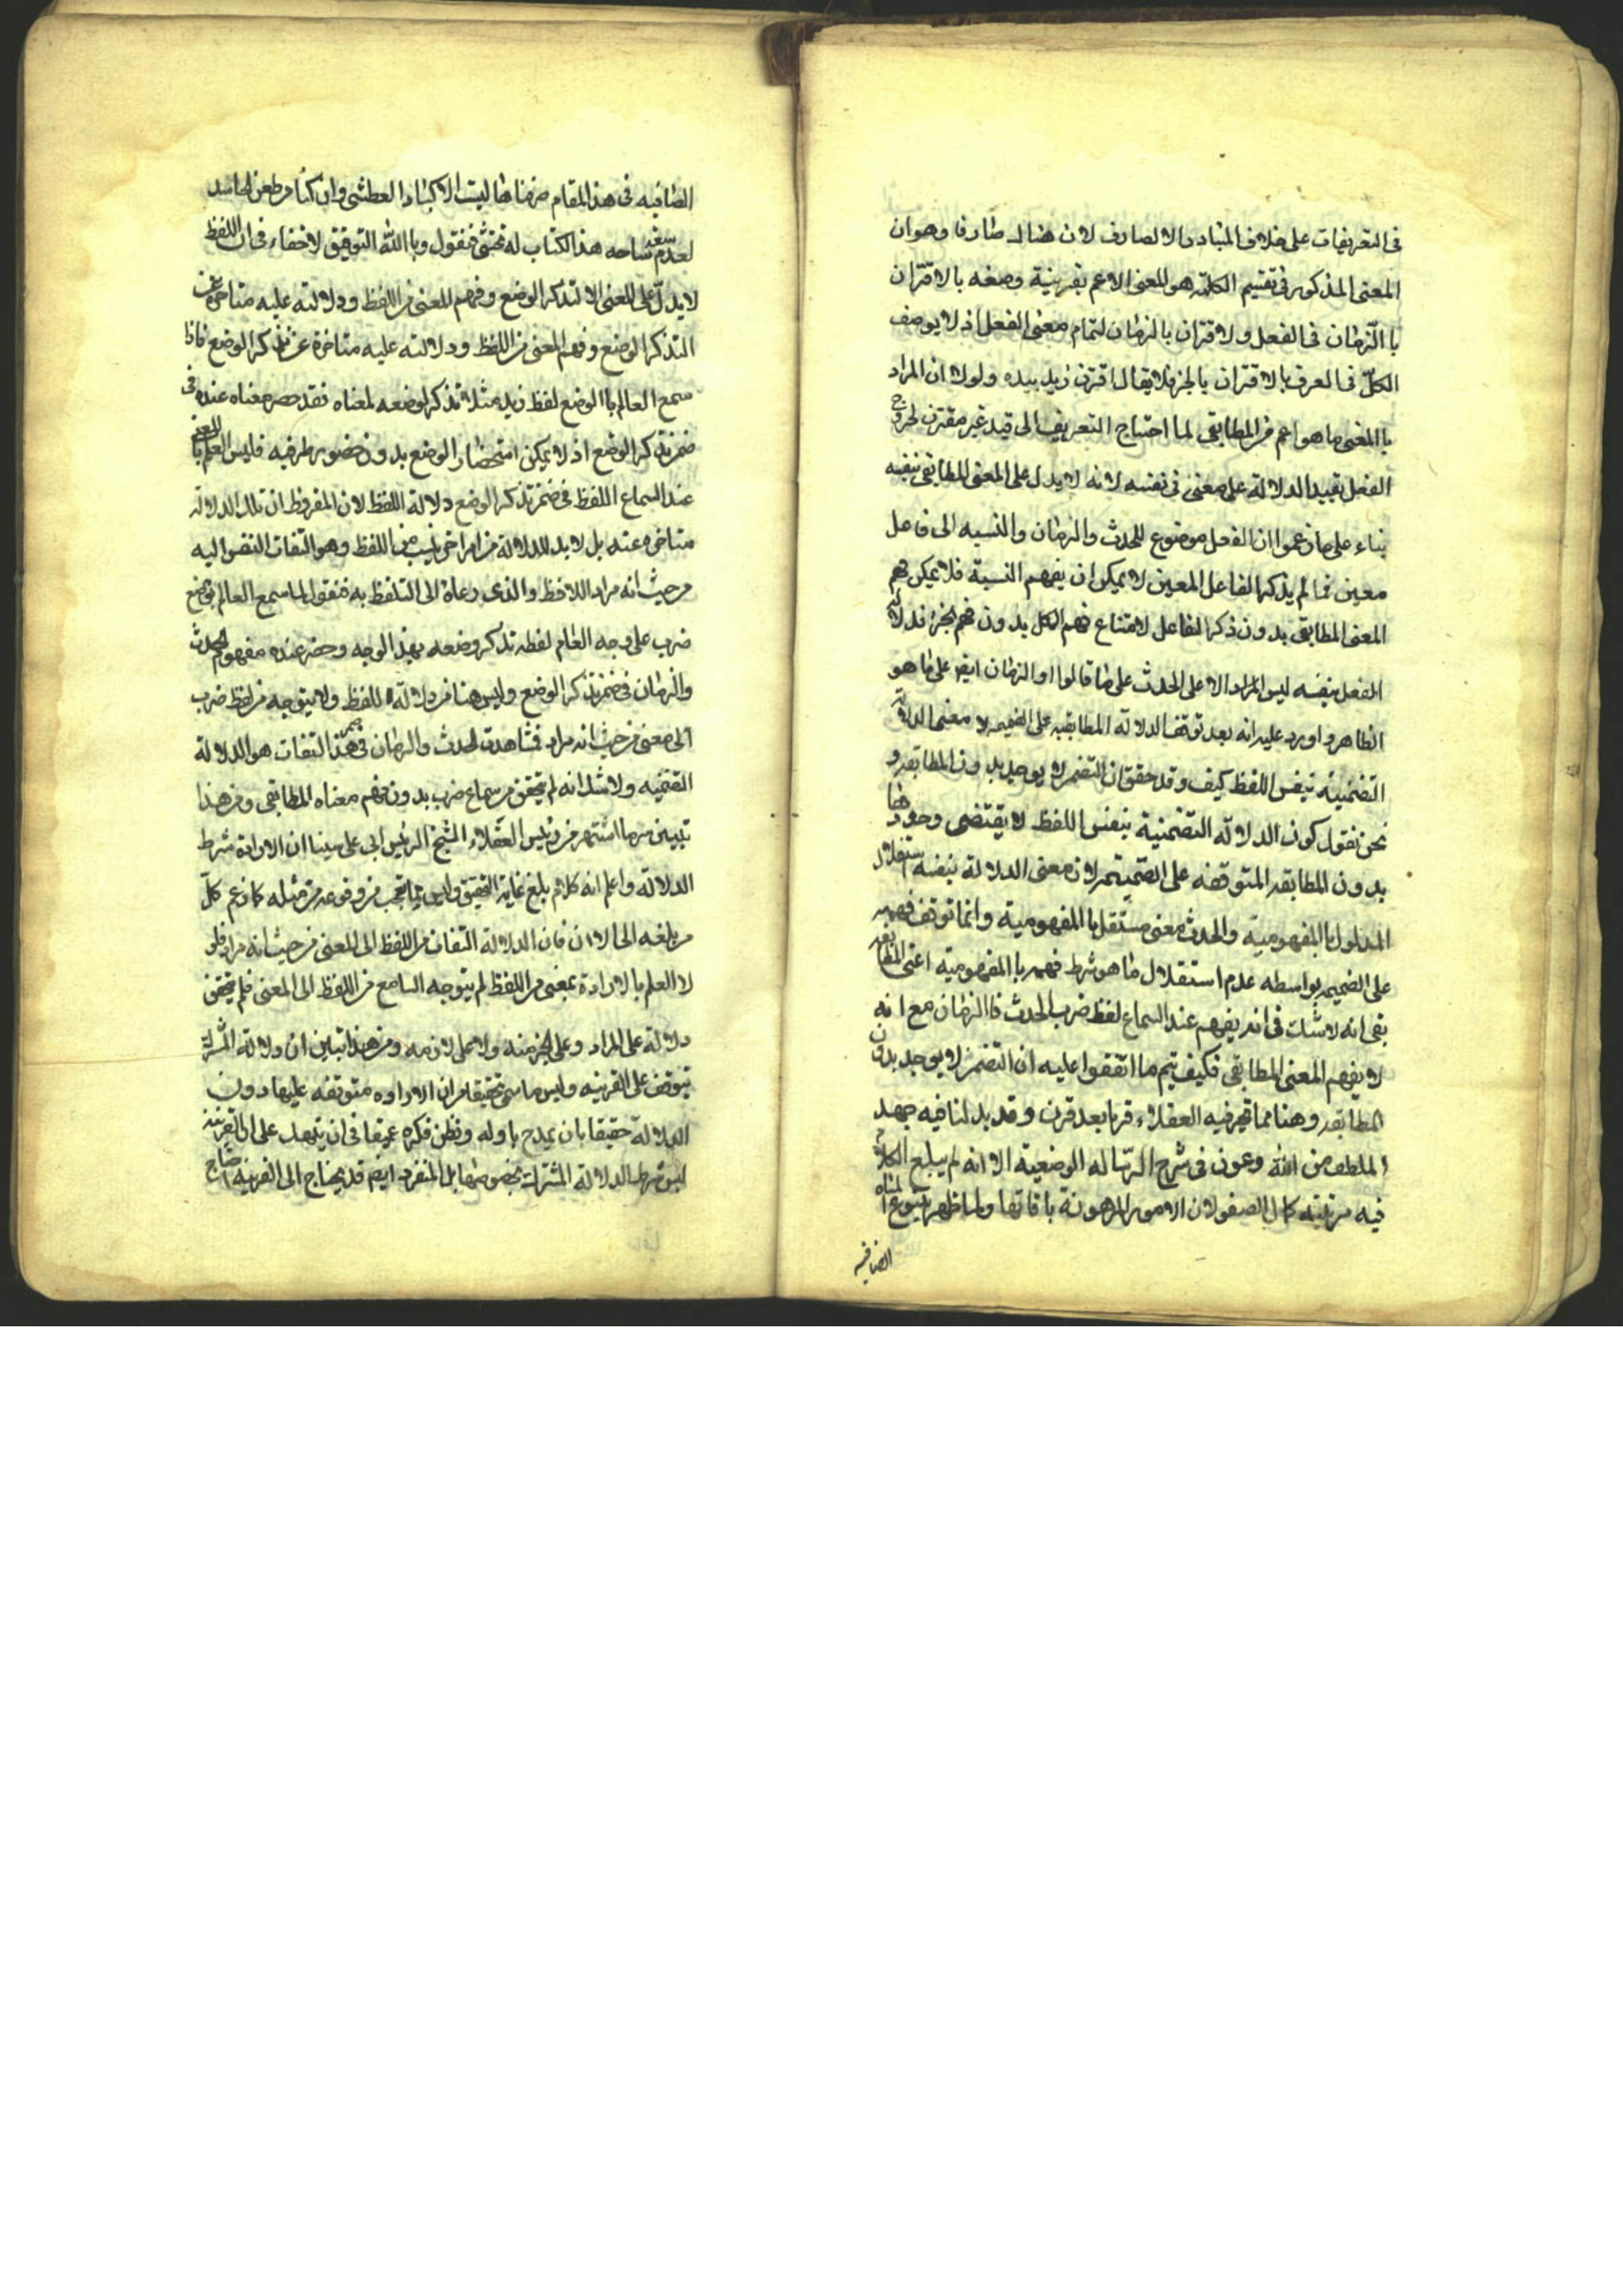 في التعريفات على خلاف المتبادر الا لصارف لان هنا لـ صارفا وهو ان
المعنى المذكور في تقسيم الكلمة هو المعنى الاعم بقرينة وصفه بالاقتران
باالزمان في الفعل ولا اقتران بالزمان لتمام معنى الفعل اذ لا يوصف
الكل في العرف بالاقتران بالجزء فلا يقال اقترن زيد بيده ولولا ان المراد
باالمعنى ما هو اعم من المطابقي لما احتاج التعريف الى قيد غير مقترن لخروج
الفعل بقييد الدلالة على معنى في نفسه لانه لا يدل على المعنى المطابقي بنفسه
بناء على ما زعموا ان الفعل موضوع للحدث والزمان والنسبه الى فاعل
معين فما لم يذكر الفاعل المعين لا يمكن ان يفهم النسبة فلا يمكن فهم
المعنى المطابقي بدون ذكر الفاعل لامتناع فهم الكل بدون فهم الجزء فدلالة
الفعل بنفسه ليس المراد الا على الحدث على ما قالوا او الزمان ايضا على ما هو
الظاهر واورد عليه انه بعد توقف الدلالة المطابقيه على الضميمه لا معنى لدلالة
التضمنية بنفس اللفظ كيف وقد حقق ان التضمن لا يوجد بدون المطابقه و
نحن نقول كون الدلالة التضمنية بنفس اللفظ لا يقتضى وجودها
بدون المطابقه المتوقفه على الضميمه لان معنى الدلالة بنفسه استقلال
المدلول باالمفهومية والحدث معنى مستقل باالمفهومية وانما توقف فهمه
على الضميمه بواسطه عدم استقلال ما هو شرط فهمه باالمفهومية اعنى المطابقه
بقى انه لا شك في انه يفهم عند السماع لفظ ضرب الحدث فاالزمان مع انه
لا يفهم المعنى المطابقي فكيف يتم ما اتفقوا عليه ان التضمن لا يوجد بدون
المطابقه وهنا مما تحير فيه العقلاء قرنا بعد قرن وقد بدلنا فيه جهد
الملطف من الله وعون في شرح الرساله الوضعية الا انه لم يبلغ الكلام
فيه مرتبته كمال الصفو لان الامور المرهونة باوقاتها ولما ظهر ينبوع المناه
الصافيه
الصافيه في هذا المقام صرفناها ليت الاكباد العطشى وان كنا من طعن الحاسد
لعدم سعة ساحه هذا الكتاب له نخشى فنقول وباالله التوفيق لا خفاء في ان اللفظ
لا يدل على المعنى الا لتذكر الوضع وفهم المعنى من اللفظ ودلالته عليه متاخرة عن
التذكر الوضع وفهم المعنى من اللفظ ودلالته عليه متاخرة عن تذكر الوضع فاذا
سمع العالم باالوضع لفظ زيد مثلا تذكر لوضعه لمعناه فقد حصر معناه عنده في
ضمن تذكر الوضع اذ لا يمكن استحضار الوضع بدون حضور طرفيه فليس العلم باالمعنى
عند السماع اللفظ في ضمن تذكر الوضع دلالة اللفظ لان المفروض ان تلك الدلالة
متاخره عنه بل لا بد للدلالة من امر اخر ليسبب من اللفظ وهو التفات النفس اليه
من حيث انه مراد اللافظ والذى دعاه الى التلفظ به فنقول لما سمع العالم بوضع
ضرب على وجه العام لفظه تذكر وضعه بهذ الوجه وحضر عنده مفهوم الحدث
والزمان في ضمن تذكر الوضع وليس هنا من دلالة اللفظ ولا يتوجه من لفظ ضرب
الى معنى من حيث انه مراد فتشاهدت الحدث والزمان في ضمن هذا التفات هو الدلالة
التضمنيه ولا شك انه لم يتحقق من سماع ضرب بدون فهم معناه المطابقي ومن هذا
تبين سر ما اشتهر من رئيس العقلاء الشيخ الرئيس ابى على سينا ان الارادة شرط
الدلالة واعلم انه كلام بلغ غاية التحقيق وليس مما يتعجب من وقوعه من مثله كما زعم كل
من بلغه الى الان فان الدلالة التفات من اللفظ الى المعنى من حيث انه مراد فلو
لا العلم بالارادة بمعنى من اللفظ لم يتوجه السامع من اللفظ الى المعنى فلم يتحقق
دلالة على المراد وعلى جزئه ولا على لازمه ومن هذا تبين ان دلالة المشترك
تتوقف على القرينه وليس ما سمى تحقيقا من ان الاراده متوقفه عليها دون
الدلالة حقيقا بان يمدح باوله ونظن فكره عميقا في ان يتهدل على ان القرينه
ليس شرط الدلالة المشترك بخصوصه مقابل المنفرد ايضا قد يحتاج الى القرينه احتياج